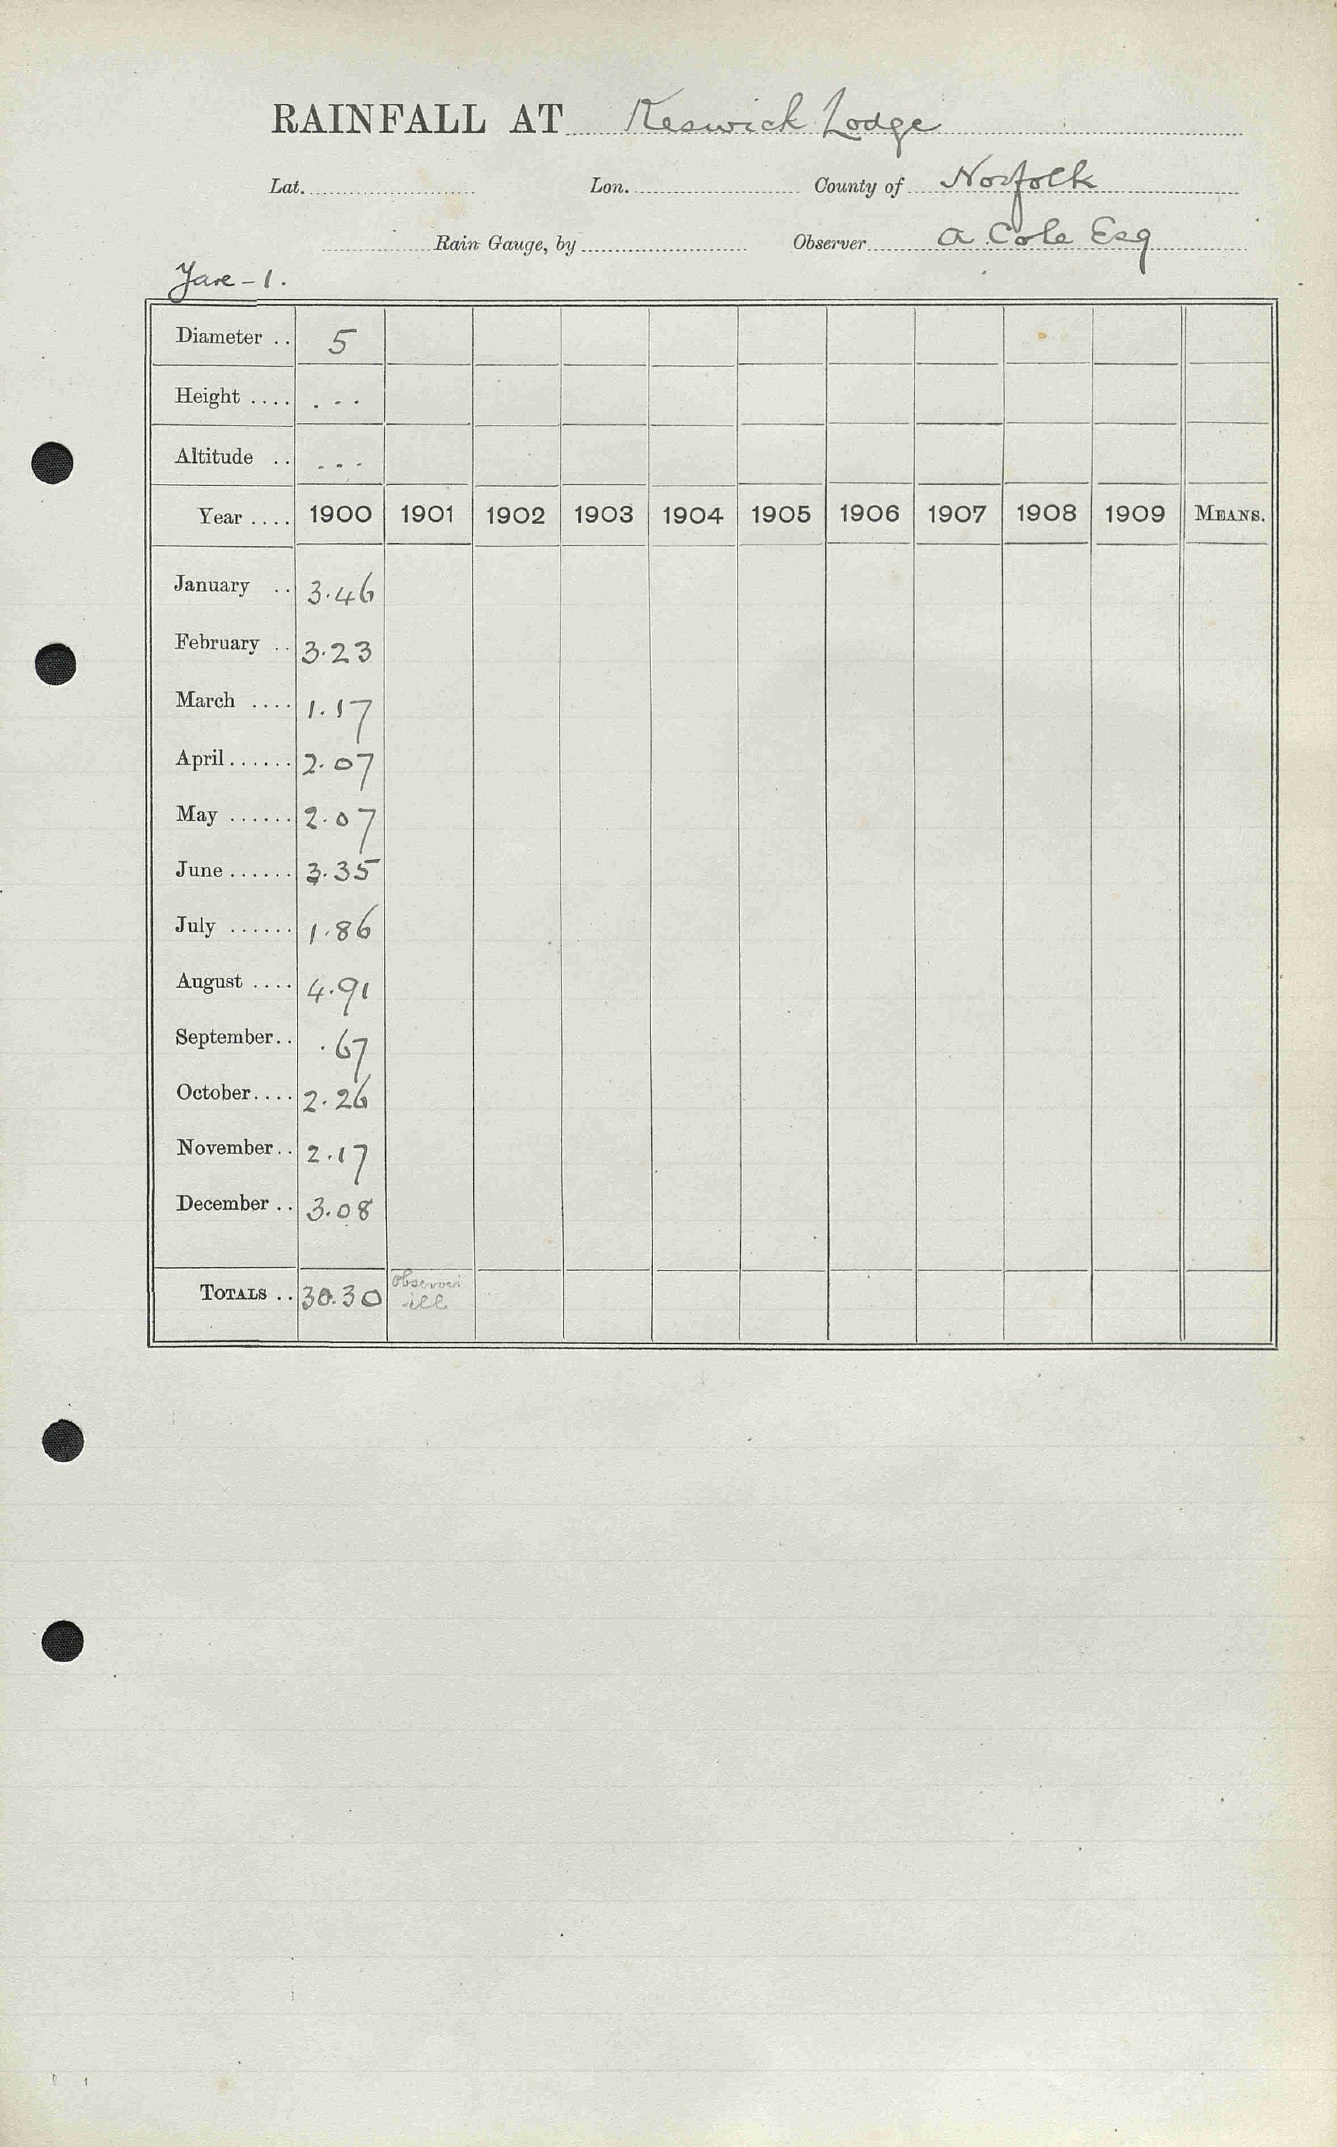 RAINFALL AT Keswick Lodge
Lat. Lon. County of Norfolk
Rain Gauge, by Observer A. Cole Esq
Yare - 1.
Diameter .. 5
Height .... . - -
Altitude .. - - -
Year .... 1900 1901 1902 1903 1904 1905 1906 1907 1908 1909 MEANS.
January .. 3.46
February .. 3.23
March .... 1.17
April ...... 2.07
May ...... 2.07
June ...... 3.35
July ...... 1.86
August .... 4.91
September .. .67
October .... 2.26
November .. 2.17
December .. 3.08
TOTALS .. 30.30 Observer
ill